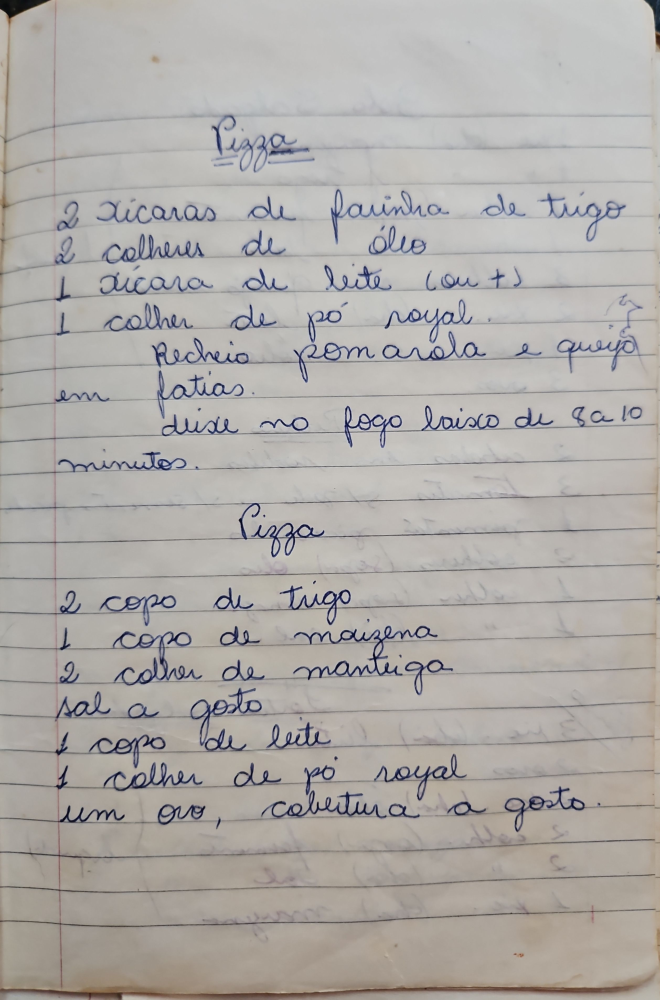 Pizza
2 xícaras de farinha de trigo
2 colheres de óleo
1 xícara de leite (ou +)
1 colher de pó royal.
Recheio pomarola e queijo
em fatias.
deixe no fogo baixo de 8 a 10
minutos.
Pizza
2 copo de trigo
1 copo de maizena
2 colher de manteiga
sal a gosto
1 copo de leite
1 colher de pó royal
um ovo, cobertura a gosto.